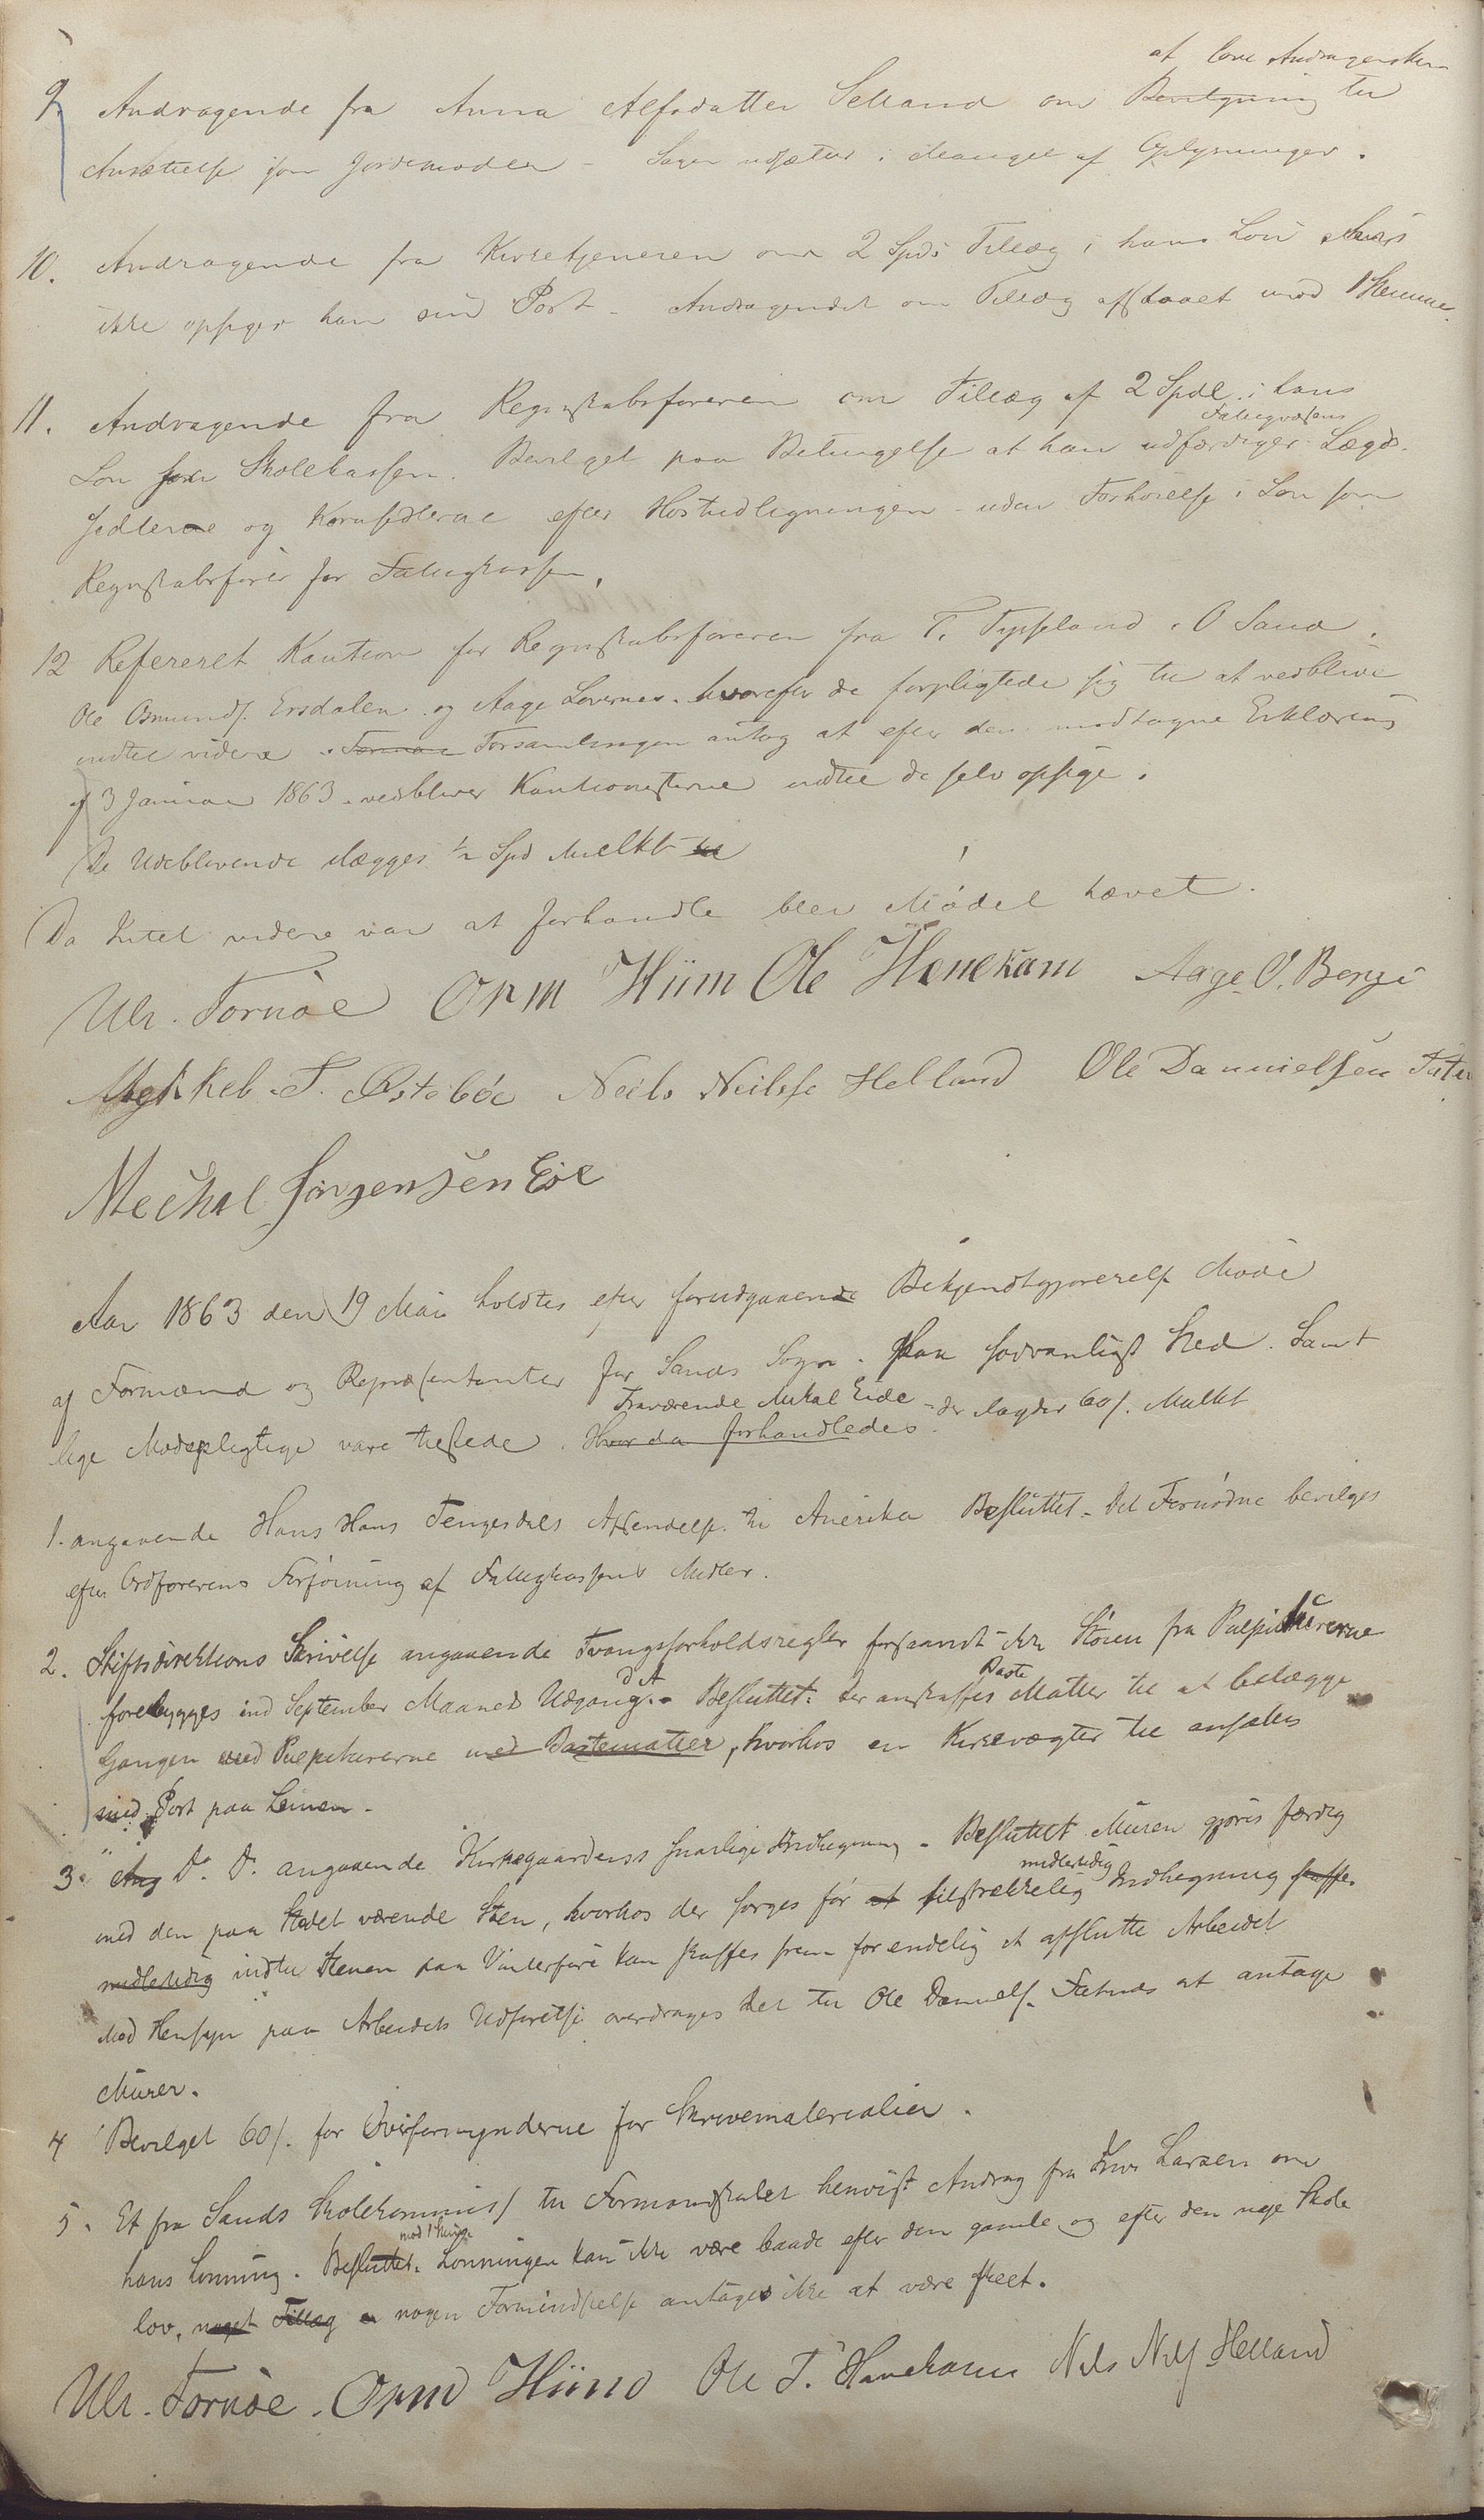 at love Andragersken
9, Andragende fra Anna Alfsdatter Selland om Bevilgning til
Ansættelse som Jordemoder - Sagen udsættes i Mangel af Oplysninger.
10. Andragende fra Kirketjeneren om 2 Spds Tillæg i hans Løn hvis
ikke opsiger han sin Post - Andragendet om Tillæg afslaaet mod 1 Stemme.
11. Andragende fra Regnskabsføreren om Tillæg af 2 Spdl i hans
Fattigvæsens
Løn fra Skolekassen. Bevilget paa Betingelse at han udfærdiger Lægds-
sedlerne og Kornsedlerne efter Høstudligningen - uden Forhøielse i Løn som
Regnskabsfører for Fattigkassen.
12 Refereret Kaution for Regnskabsføreren fra T. Tysseland, O Sand,
Ole Osmunds. Ersdalen og Aage Lovernes. hvorefter de forpligtede sig til at vedblive
indtil videre. Forman Forsamlingen antog at efter den modtagne Erklæring
af 3 Januar 1863 vedbliver Kautionisterne indtil de selv opsige.
De Udeblivende ilægges ½ Spd Mulkt
Da Intet videre var at forhandle blev Mødet hævet.
Ulr. Tornøe Orm Hiim Ole Hanekam Aage O. Berge
Mykkel T. Østebøe Neils Neilsse Helland Ole Dannielsen
Meckal Jørgensen Eie
Aar 1863 den 19 Mai holdtes efter forudgaaende Bekjendtgjørelse Møde
af Formænd og Repræsentanter for Sands Sogn. paa sædvanligt Sted. Samt
Fraværende Mikal Eide - der ilagdes 60/. Mulkt
lige Mødepligtige vare tilstede. Hvor da forhandledes.
1. angaaende Hans Hans Tengesdals Afsendelse til Amerika Besluttet - Det Fornødne bevilges
efter Ordførerens Forføining af Fattigkassens Midler.
2. Stiftsdirektions Skrivelse angaaende Tvangsforholdsregler forsaavidt ikke Støien fra Pulpiturerne
Baste
forebygges ind September Maaneds Udgang d. A. - Besluttet: der anskaffes Matter til at belægge
Gangen ved Pulpiturerne med Bastematter, hvorhos en Kirkevægter til ansættes
med Post paa Lemen -
3. Ang Do. Do. angaaende Kirkegaardens snarlige Indhegning - Besluttet Muren gjøres færdig
midlertidig
med den paa Stedet værende Sten, hvorhos der sørges for at tilstrækkelig Indhegning skaffes
midlertidig indtil Stenen paa Vinterføre kan skaffes frem for endelig at afslutte Arbeidet
Med Hensyn paa Arbeidets Udførelse overdrages det til Ole Daniels. at antage
Murer.
4 Bevilget 60/. for Overformynderne for Skrivematerialier.
5. Et fra Sands Skolekommiss/ til Formandskabet henvist Andrag fra Larsen om
mod 1 Stemme
hans Lønning. Besluttet. Lønningen kan ikke være baade efter den gamle og efter den nye Skole
lov, noget Tillæg nogen Formindskelse antages ikke at være skeet.
Ulr. Tornøe. Orm Hiim Ole T. Hanekam Nels Nils Helland